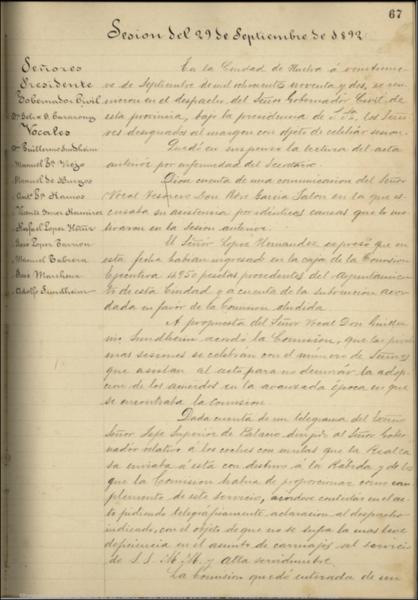 67
Sesion del 29 de Septiembre de 1892
Señores
Presidente
Gobernador Civil
Dn Felix A. Carazony
Vocales
Dn Guillermo Sundheim
Manuel Gª Viejo
Manuel de Burgos
Antº Gª Ramos
Rafael Lopez Hdez
José Lopez Carrion
Manuel Cabrera
José Marchena
Adolfo Sundheim
En la Ciudad de Huelva á veintinue-
ve de Septiembre de mil ochocientos noventa y dos, se reu-
nieron en el despacho del Señor Gobernador Civil de
esta provincia, bajo la presidencia de S. Sª, los Seño-
res designados al margen con objeto de celebrar sesion.
Quedó en suspenso la lectura del acta
anterior por enfermedad del Secretario.
Dióse cuenta de una comunicacion del Señor
Vocal Tesorero Don Garcia en la que es-
cusaba su asistencia por idénticas causas que lo mo-
tivaron en la sesion anterior.
El Señor Lopez Hernandez expresó que en
esta fecha habian ingresado en la caja de la Comision
Ejecutiva 4.950 pesetas procedentes del Ayuntamien-
to de esta Ciudad y á cuenta de la subvencion acor-
dada en favor de la Comision aludida.
A propuesta del Señor Vocal Don Guiller-
mo Sundheim acordó la Comision, que las próxi-
mas sesiones se celebrán con el número de Señores
que asistan al acto para no demorár la adop-
cion de los acuerdos en la avanzada época en que
se encontraba la Comision.
Dada cuenta de un telegrama del Excmo
Señor Jefe Superior de Palacio, dirijido al Señor Gober-
nador relativo a los coches con mulas que la Real ca-
sa enviaba á esta con destino á la Rábida, y de los
que la Comision habia de proporcionar como com-
plemento de este servicio, acordose contestar en el ac-
to pidiendo telegráficamente aclaracion al despacho
indicado, con el objeto de que no se sufra la mas leve
deficiencia en el asunto de carruajes al servicio
de S. S. M. M. y alta servidumbre.
La Comision quedó enterada de un